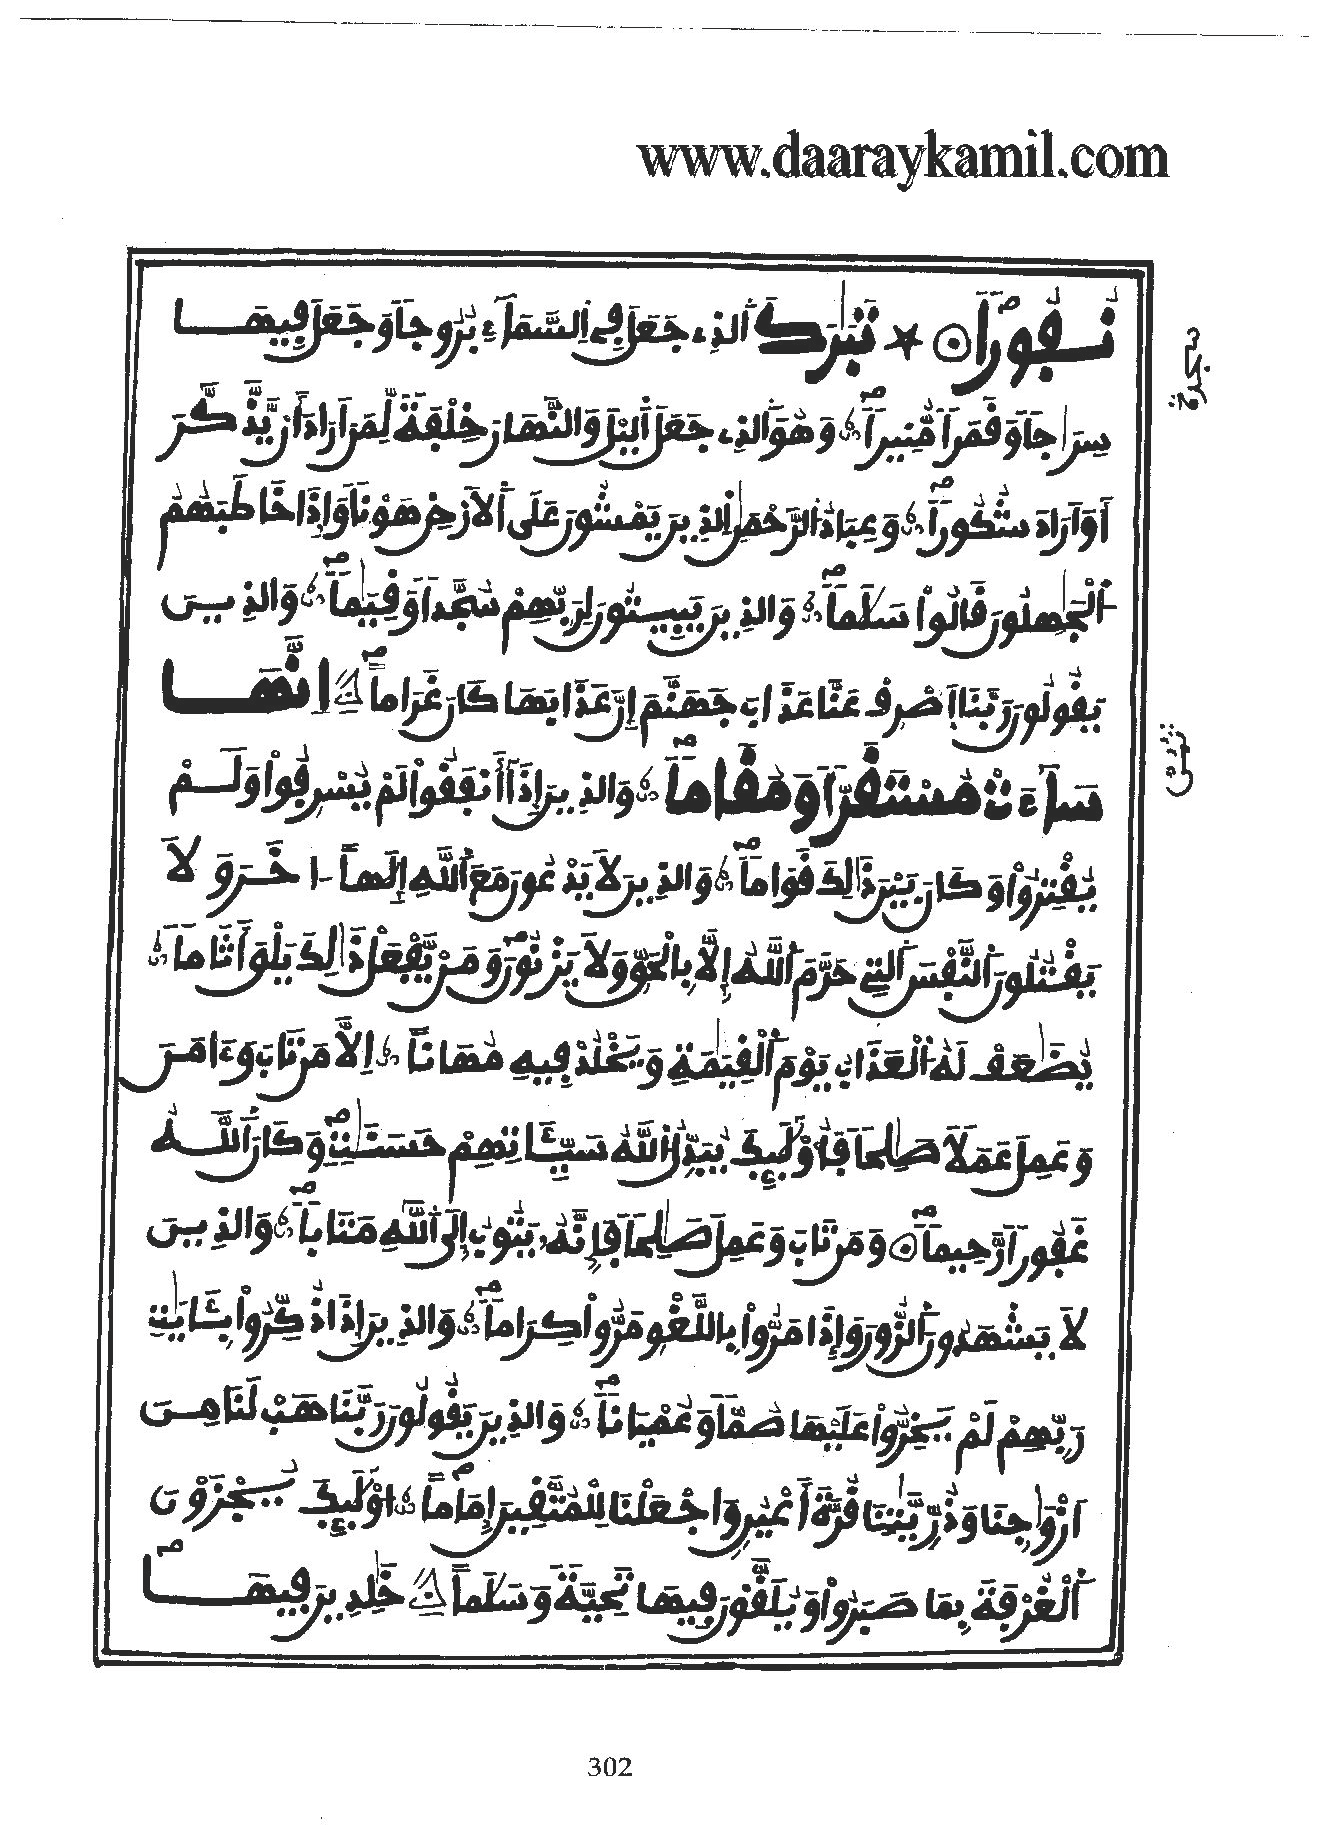 www.daaraykamil.com
نُفُوراً ۞ تَبَٰرَكَ ألذِے جَعَلَ فِے اِ۬لسَّمَآءِ بُرُوجاٗ وَجَعَلَ فِيهَا
سجدة
سِرَٰجاٗ وَقَمَراٗ مُّنِيراٗ وَهُوَ ألذِے جَعَلَ أليْلَ وَالنَّهَارَ خِلْفَةٗ لِّمَنَ اَرَادَ أَنْ يَّذَّكَّرَ
أَوَ اَرَادَ شُكُوراٗ وَعِبَادُ الرَّحْمَٰنِ اِ۬لذِينَ يَمْشُونَ عَلَى ألَارْضِ هَوْناٗ وَإِذَا خَاطَبَهُمُ
ألْجَٰهِلُونَ قَالُواْ سَلَٰماٗ وَالذِينَ يَبِيتُونَ لِرَبِّهِمْ سُجَّداٗ وَقِيَٰماٗ وَالذِينَ
يَقُولُونَ رَبَّنَا اَ۪صْرِفْ عَنَّا عَذَابَ جَهَنَّمَ إِنَّ عَذَابَهَا كَانَ غَرَاماً اِنَّهَا
ثمن
سَآءَتْ مُسْتَقَرّاٗ وَمُقَاماٗ وَالذِينَ إِذَآ أَنفَقُواْ لَمْ يُسْرِفُواْ وَلَمْ
يُقْتِرُواْ وَكَانَ بَيْنَ ذَٰلِكَ قَوَاماٗ وَالذِينَ لَا يَدْعُونَ مَعَ أللَّهِ إِلَٰهاً اٰخَرَ وَلَا
يَقْتُلُونَ ألنَّفْسَ ألتِے حَرَّمَ أللَّهُ إِلَّا بِالْحَقِّ وَلَا يَزْنُونَ وَمَنْ يَّفْعَلْ ذَٰلِكَ يَلْقَ أَثَاماٗ
يُضَٰعَفْ لَهُ ألْعَذَابُ يَوْمَ ألْقِيَٰمَةِ وَيَخْلُدْ فِيهِ مُهَاناً اِلَّا مَن تَابَ وَءَامَنَ
وَعَمِلَ عَمَلاٗ صَٰلِحاٗ فَأُوْلَٰٓئِكَ يُبَدِّلُ أللَّهُ سَيِّـَٔاتِهِمْ حَسَنَٰتٖ وَكَانَ أللَّهُ
غَفُوراٗ رَّحِيماٗ وَمَن تَابَ وَعَمِلَ صَٰلِحاٗ فَإِنَّهُۥ يَتُوبُ إِلَى أللَّهِ مَتَاباٗ وَالذِينَ
لَا يَشْهَدُونَ ألزُّورَ وَإِذَا مَرُّواْ بِاللَّغْوِ مَرُّواْ كِرَاماٗ وَالذِينَ إِذَا ذُكِّرُواْ بِـَٔايَٰتِ
رَبِّهِمْ لَمْ يَخِرُّواْ عَلَيْهَا صُمّاٗ وَعُمْيَاناٗ وَالذِينَ يَقُولُونَ رَبَّنَا هَبْ لَنَا مِنَ
اَزْوَٰجِنَا وَذُرِّيَّٰتِنَا قُرَّةَ أَعْيُنٖ وَاجْعَلْنَا لِلْمُتَّقِينَ إِمَاماً اوْلَٰٓئِكَ يُجْزَوْنَ
ألْغُرْفَةَ بِمَا صَبَرُواْ وَيُلَقَّوْنَ فِيهَا تَحِيَّةٗ وَسَلَٰماً خَٰلِدِينَ فِيهَا
302